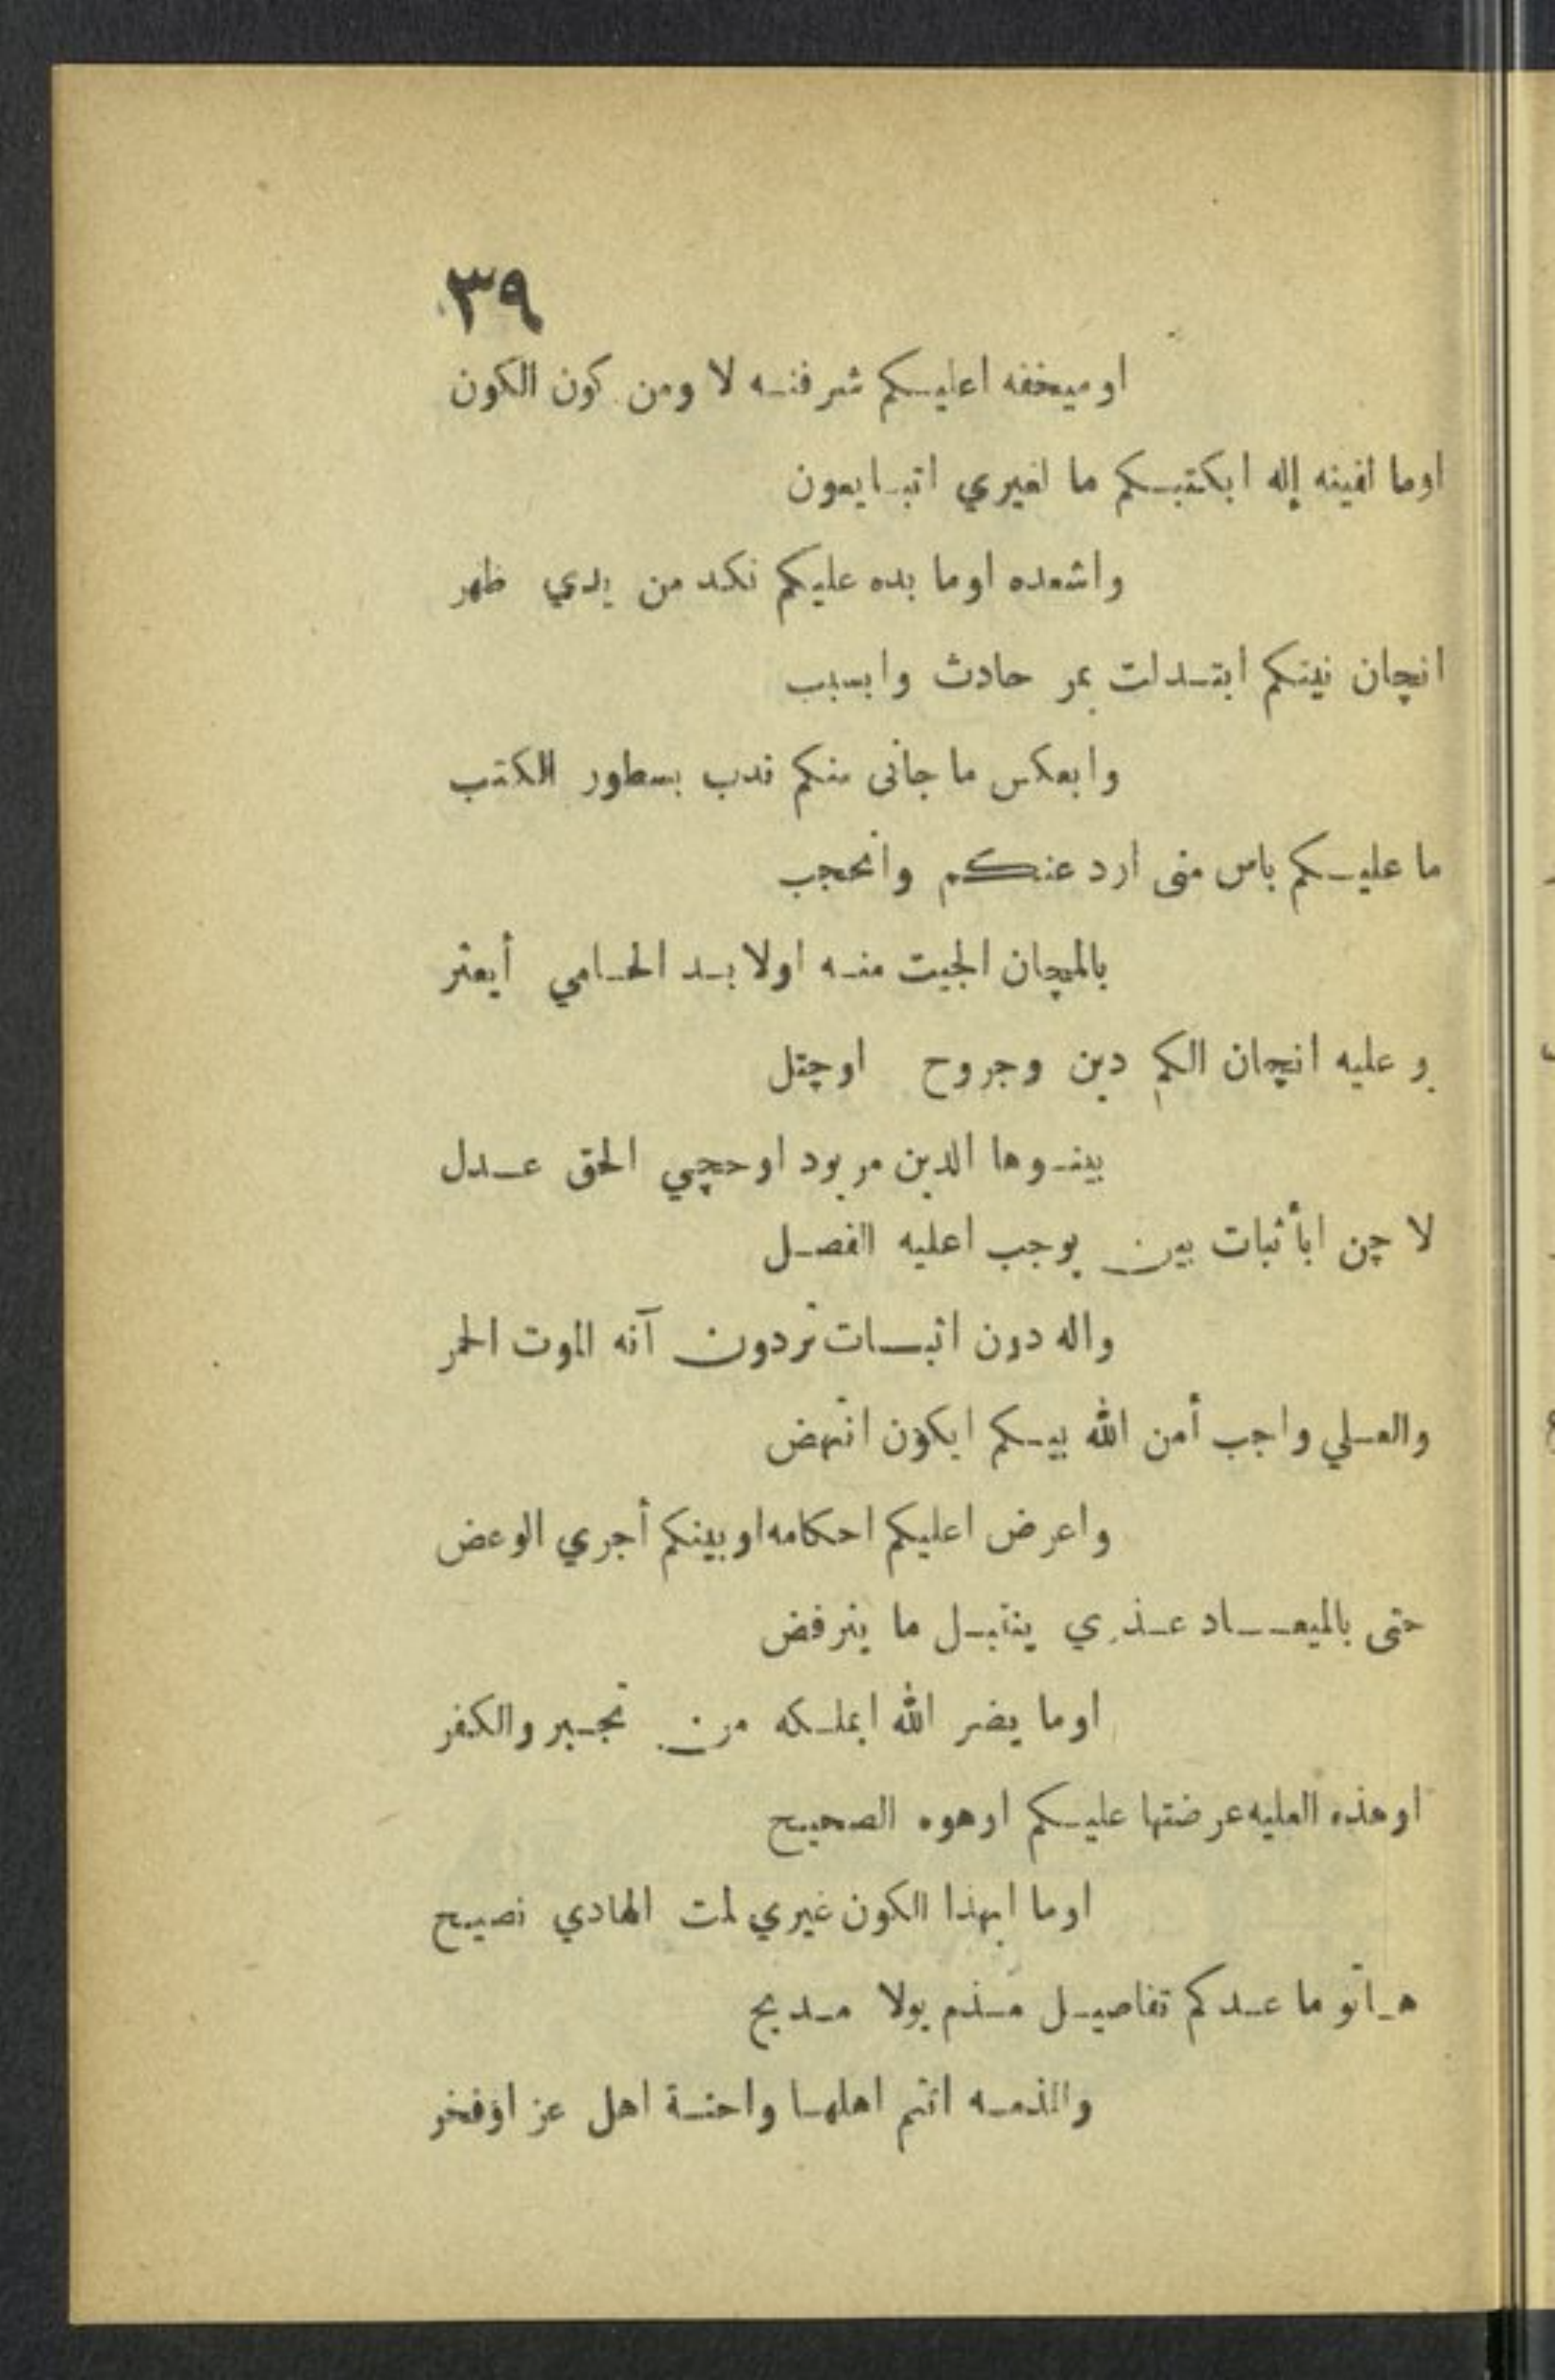 ٣٩
او ميخفه اعليكم شرفنه لا ومن كون الكون
اوما لفينه إله ابكتبكم ما لغيري اتبايعون
واشعده اوما بده عليكم نكد من يدي ظهر
انچان نيتكم ابتدلت بمر حادث وابسبب
وابعكس ما جانى منكم ندب بسطور الكتب
ما عليكم باس منى ارد عنكم وانحجب
بالمچان الجيت منه اولا بد الحامي أيعثر
و عليه انچان الكم دين وجروح اوچتل
بينوها الدين مر يود اوحچي الحق عدل
لا چن ابأثبات بين يوجب اعليه الفصل
واله دون اثبات تردون آنه الموت الحمر
والعلي واجب أمن الله بيكم ايكون انهض
واعرض اعليكم احكامه او بينكم أجري الوعض
حتى بالميعاد عذري ينقبل ما ينرفض
اوما يضر الله ابملكه من تجبر والكفر
اوهذه العليه عرضتها عليكم اوهوه الصحيح
اوما ابهذا الكون غيري لمت الهادي نصيح
هاتو ما عدكم تفاصيل مذم يولا مديح
والمذمه انتم اهلها واحنة اهل عز اوفخر